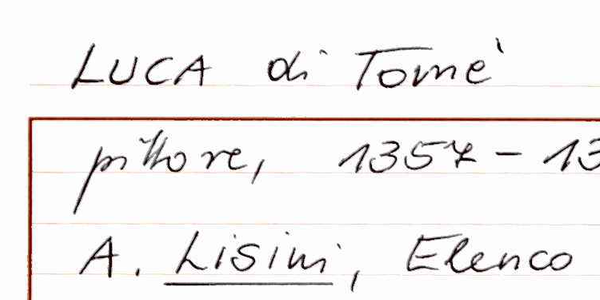 LUCA di Tomè
pittore, 1357 – 13
A. Lisini, Elenco